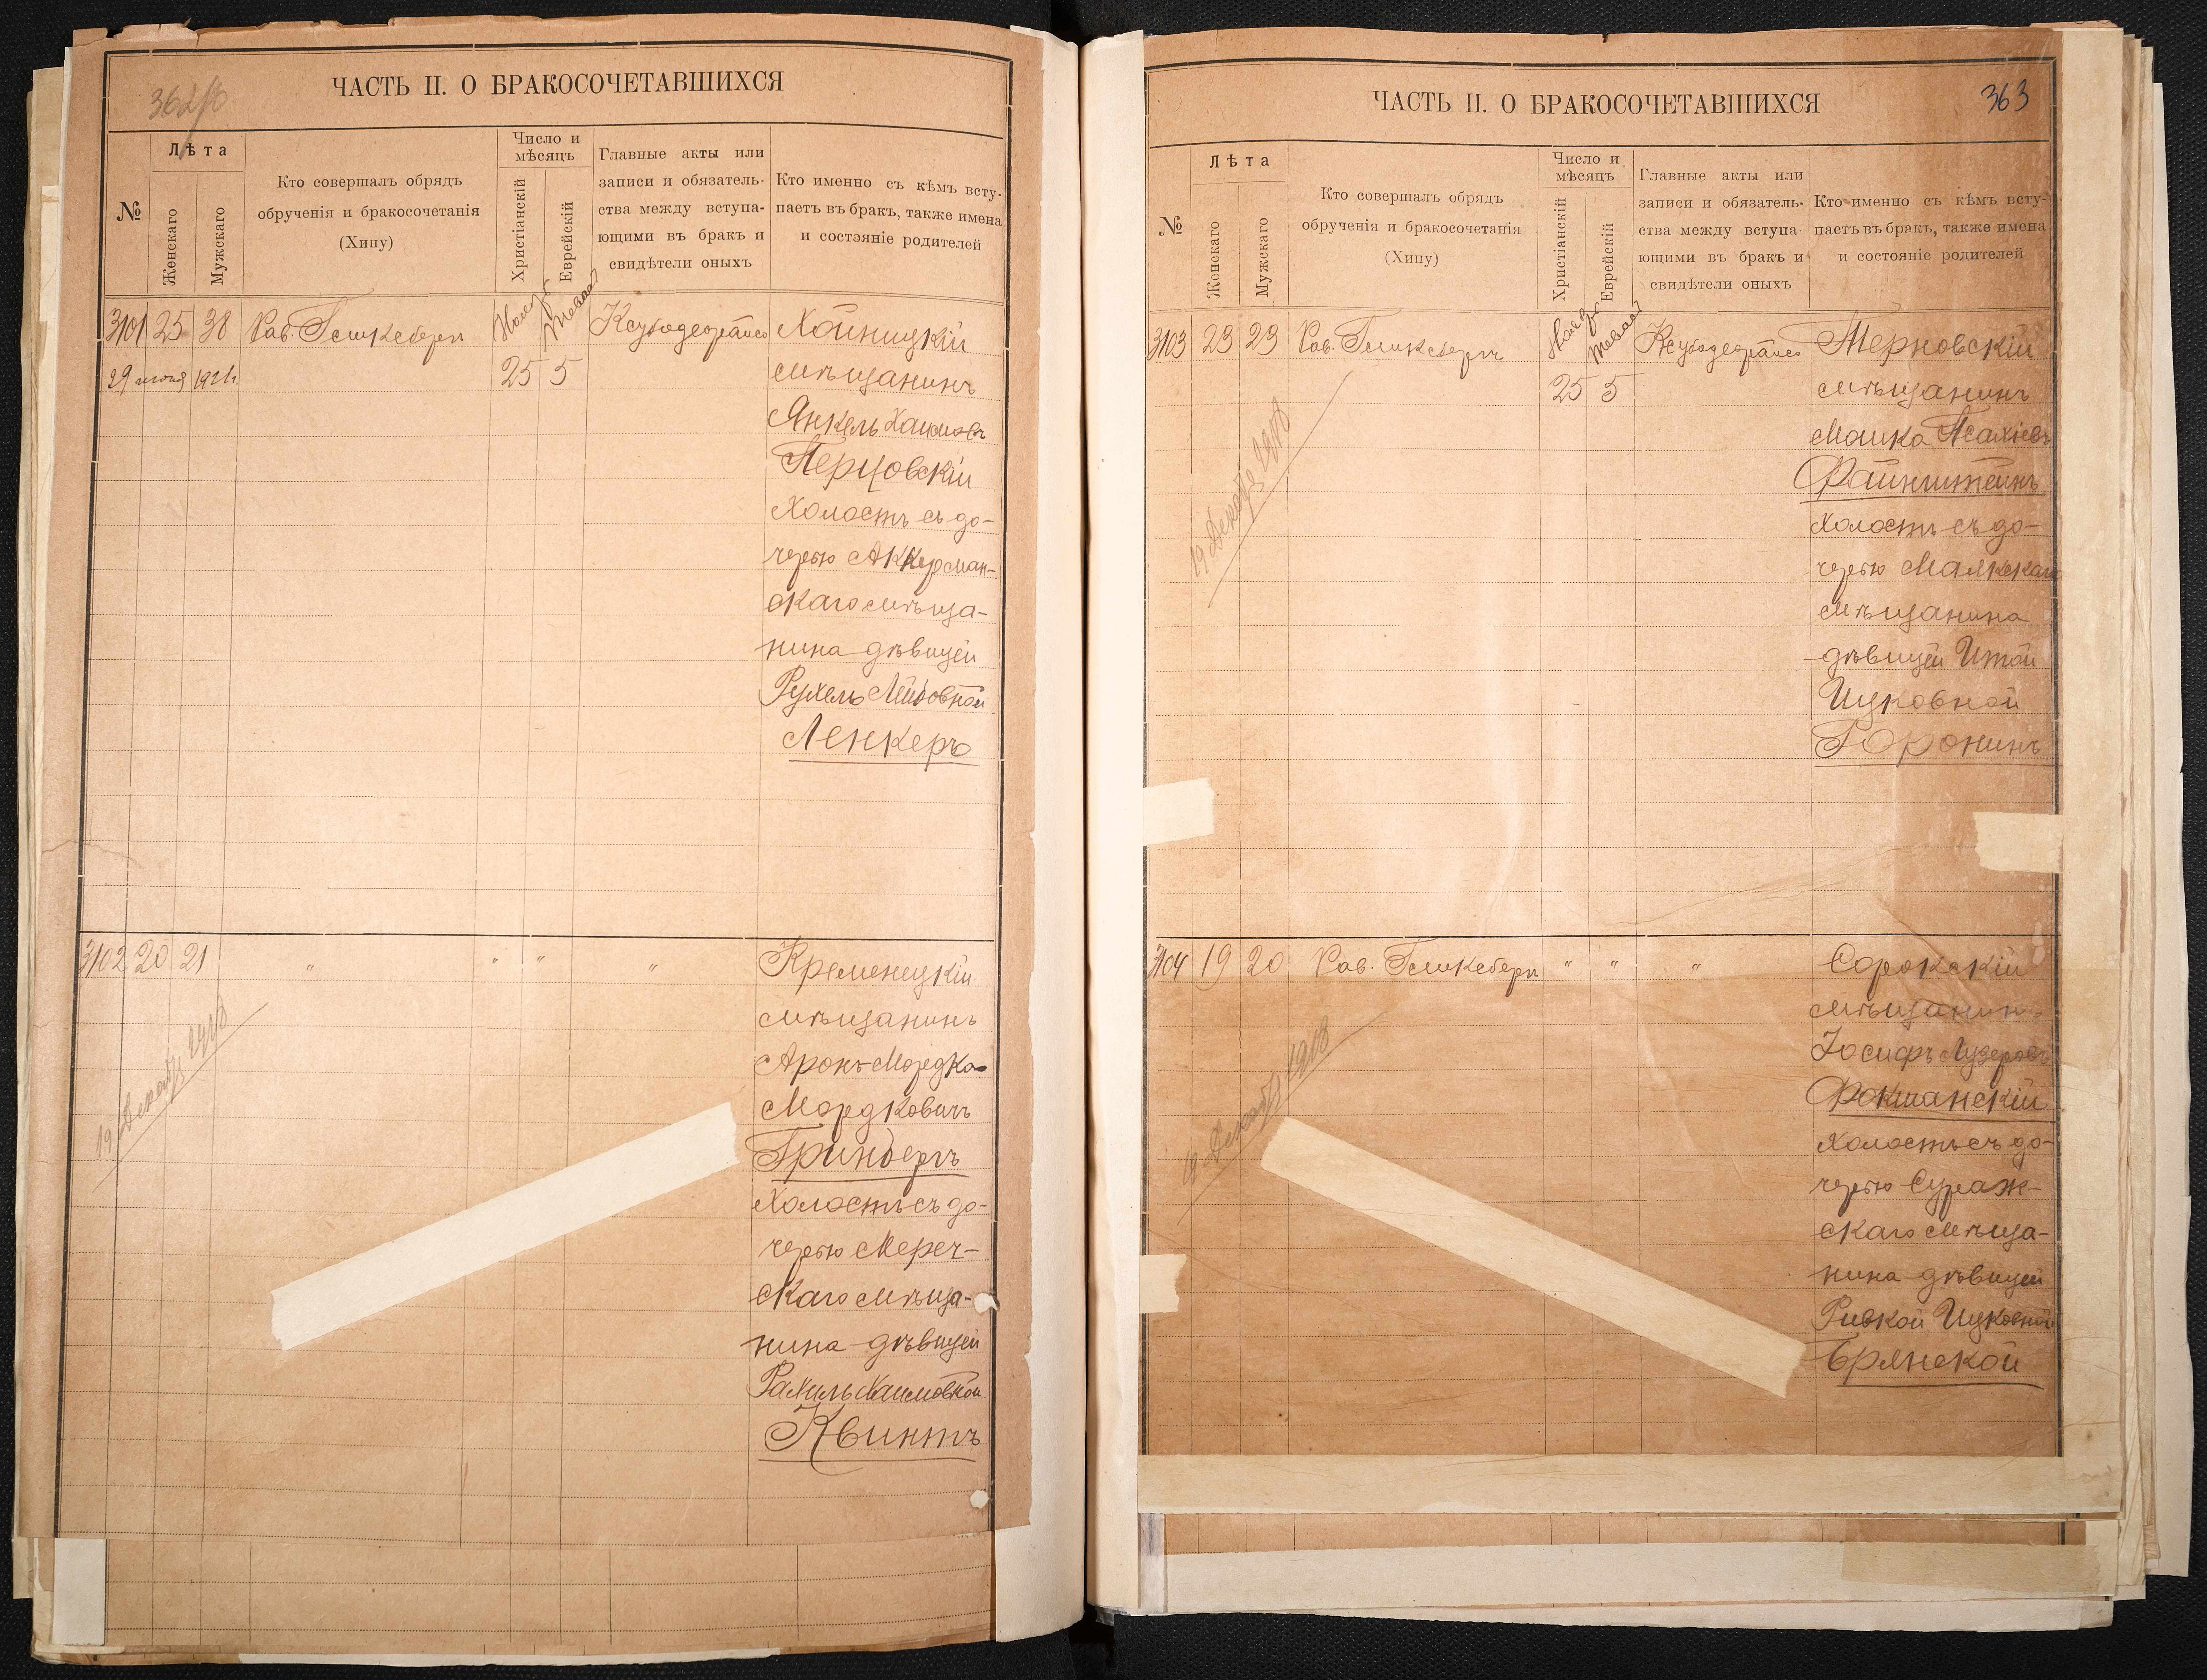 362/б
ЧАСТЬ II. О БРАКОСОЧЕТАВШИХСЯ
№
Лѣта
Женскаго
Мужскаго
Кто совершалъ обрядъ
обрученія и бракосочетанія
(Хипу)
Число и
мѣсяцъ
Христіанскій
Еврейскій
Главные акты или
записи и обязатель-
ства между вступа-
ющими въ бракъ и
свидѣтели оныхъ
Кто именно съ кѣмъ всту-
паетъ въ бракъ, также имена
и состояніе родителей
3101 25 38 Рав. Гамкебергъ Ноябр Тевай Ксубодеорайсо Хойницкій
29 1921 г. 25 5 мѣщанинъ
Янкель Хаимовъ
Перцовскій
Холостъ съ до-
черью Аккерман-
скаго мѣща-
нина дѣвицей
Рухель Лейбовной
Ленкеръ
3102 20 21 " " " " Кременецкій
мѣщанинъ
Аронъ-Мордко
Мордковичъ
Гринбергъ
Холостъ съ до-
черью Мереч-
скаго мѣща-
нина дѣвицей
Рахиль Хаимовной
Квинтъ
19 Декабр 1918
363
ЧАСТЬ II. О БРАКОСОЧЕТАВШИХСЯ
№
Лѣта
Женскаго
Мужскаго
Кто совершалъ обрядъ
обрученія и бракосочетанія
(Хипу)
Число и
мѣсяцъ
Христіанскій
Еврейскій
Главные акты или
записи и обязатель-
ства между вступа-
ющими въ бракъ и
свидѣтели оныхъ
Кто именно съ кѣмъ всту-
паетъ въ бракъ, также имена
и состояніе родителей
3103 23 23 Рав. Гамкебергъ Ноябр Тевай Ксубодеорайсо Терновскій
25 5 мѣщанинъ
Мошка Псахіевъ
Файнштейнъ
Холостъ съ до-
черью Маякскаго
мѣщанина
дѣвицей Итой
Ицковной
Горонинъ
19 Декабр 1918
3104 19 20 Рав. Гамкебергъ " " " Сорокскій
мѣщанинъ
Іосифъ Лузеровъ
Фокшанскій
Холостъ съ до-
черью Сураж-
скаго мѣща-
нина дѣвицей
Ривкой Ицковной
Брянской
19 Декабр 1918